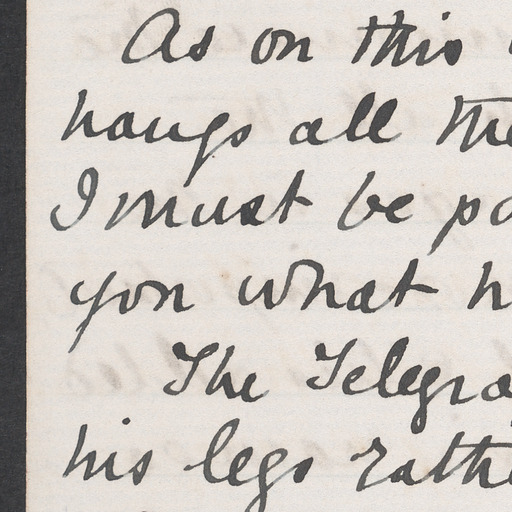 As on this
hangs all the
I must be pa
you what h
The Telegra
his legs rathe